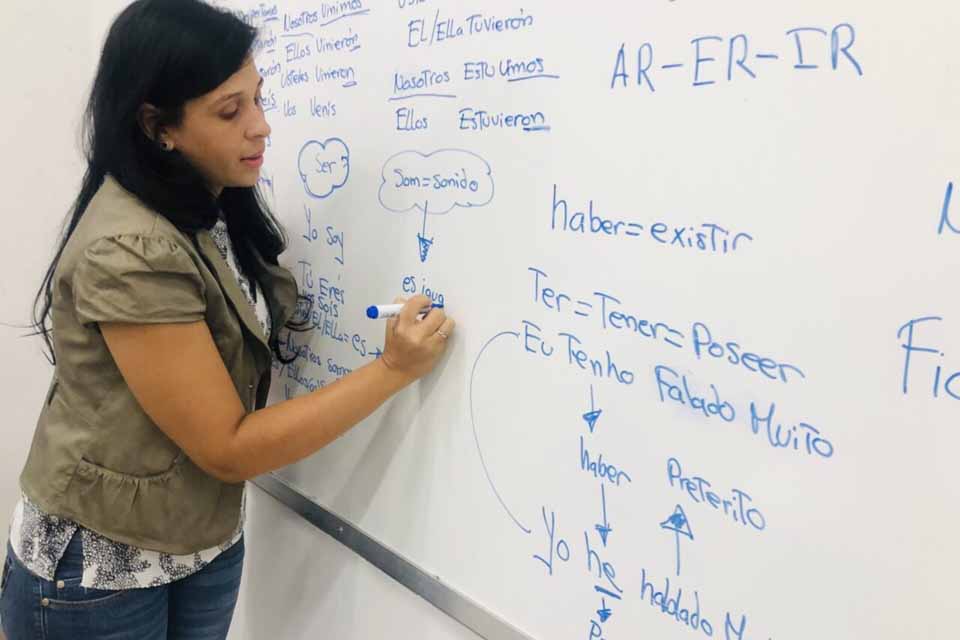 Nosotros Vinimos
Ellos Vinierón
Ustedes Vinieron
Vos Venís
El/Ella Tuvierón
Nosotros Estuvimos
Ellos Estuvieron
AR-ER-IR
Ser
Yo Soy
Tú Erés
Sois
El/Ella = es
Nosotros Somos
Som=Sonido
es igua
haber=existir
Ter=Tener=Poseer
Eu Tenho Falado Muito
haber
Preterito
Yo he hablado M